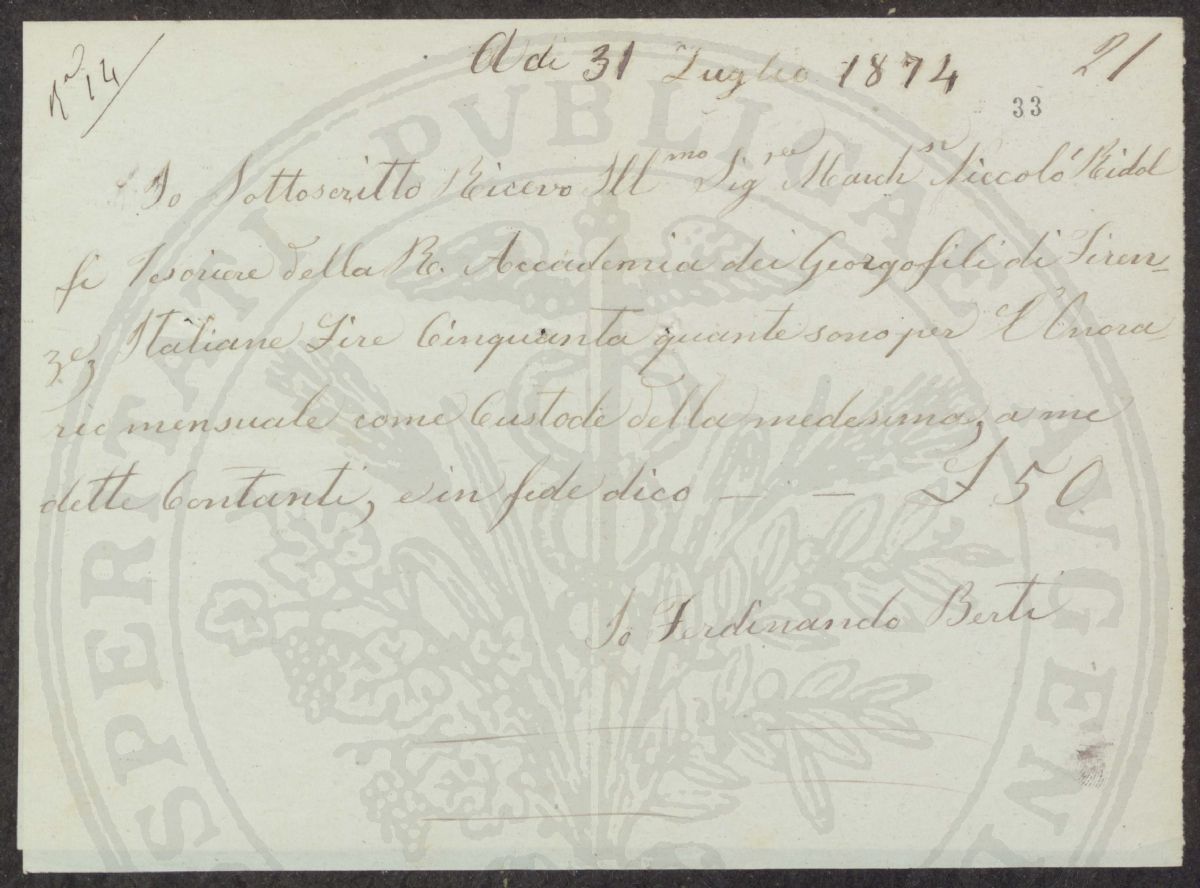 N° 14
A di 31 Luglio 1874
21
33
Io Sottoscritto Ricevo Ill^mo Sig^re March^se Niccoló Ridol
fi Tesoriere della R. Accademia dei Georgofili di Firen-
ze, Italiane Lire Cinquanta quante sono per L'Onora-
rio mensuale come Custode della medesima, a me
dette Contanti, e in fede dico — — £ 50
Io Ferdinando Berti
PROSPERITATI PUBLICAE AUGENDAE